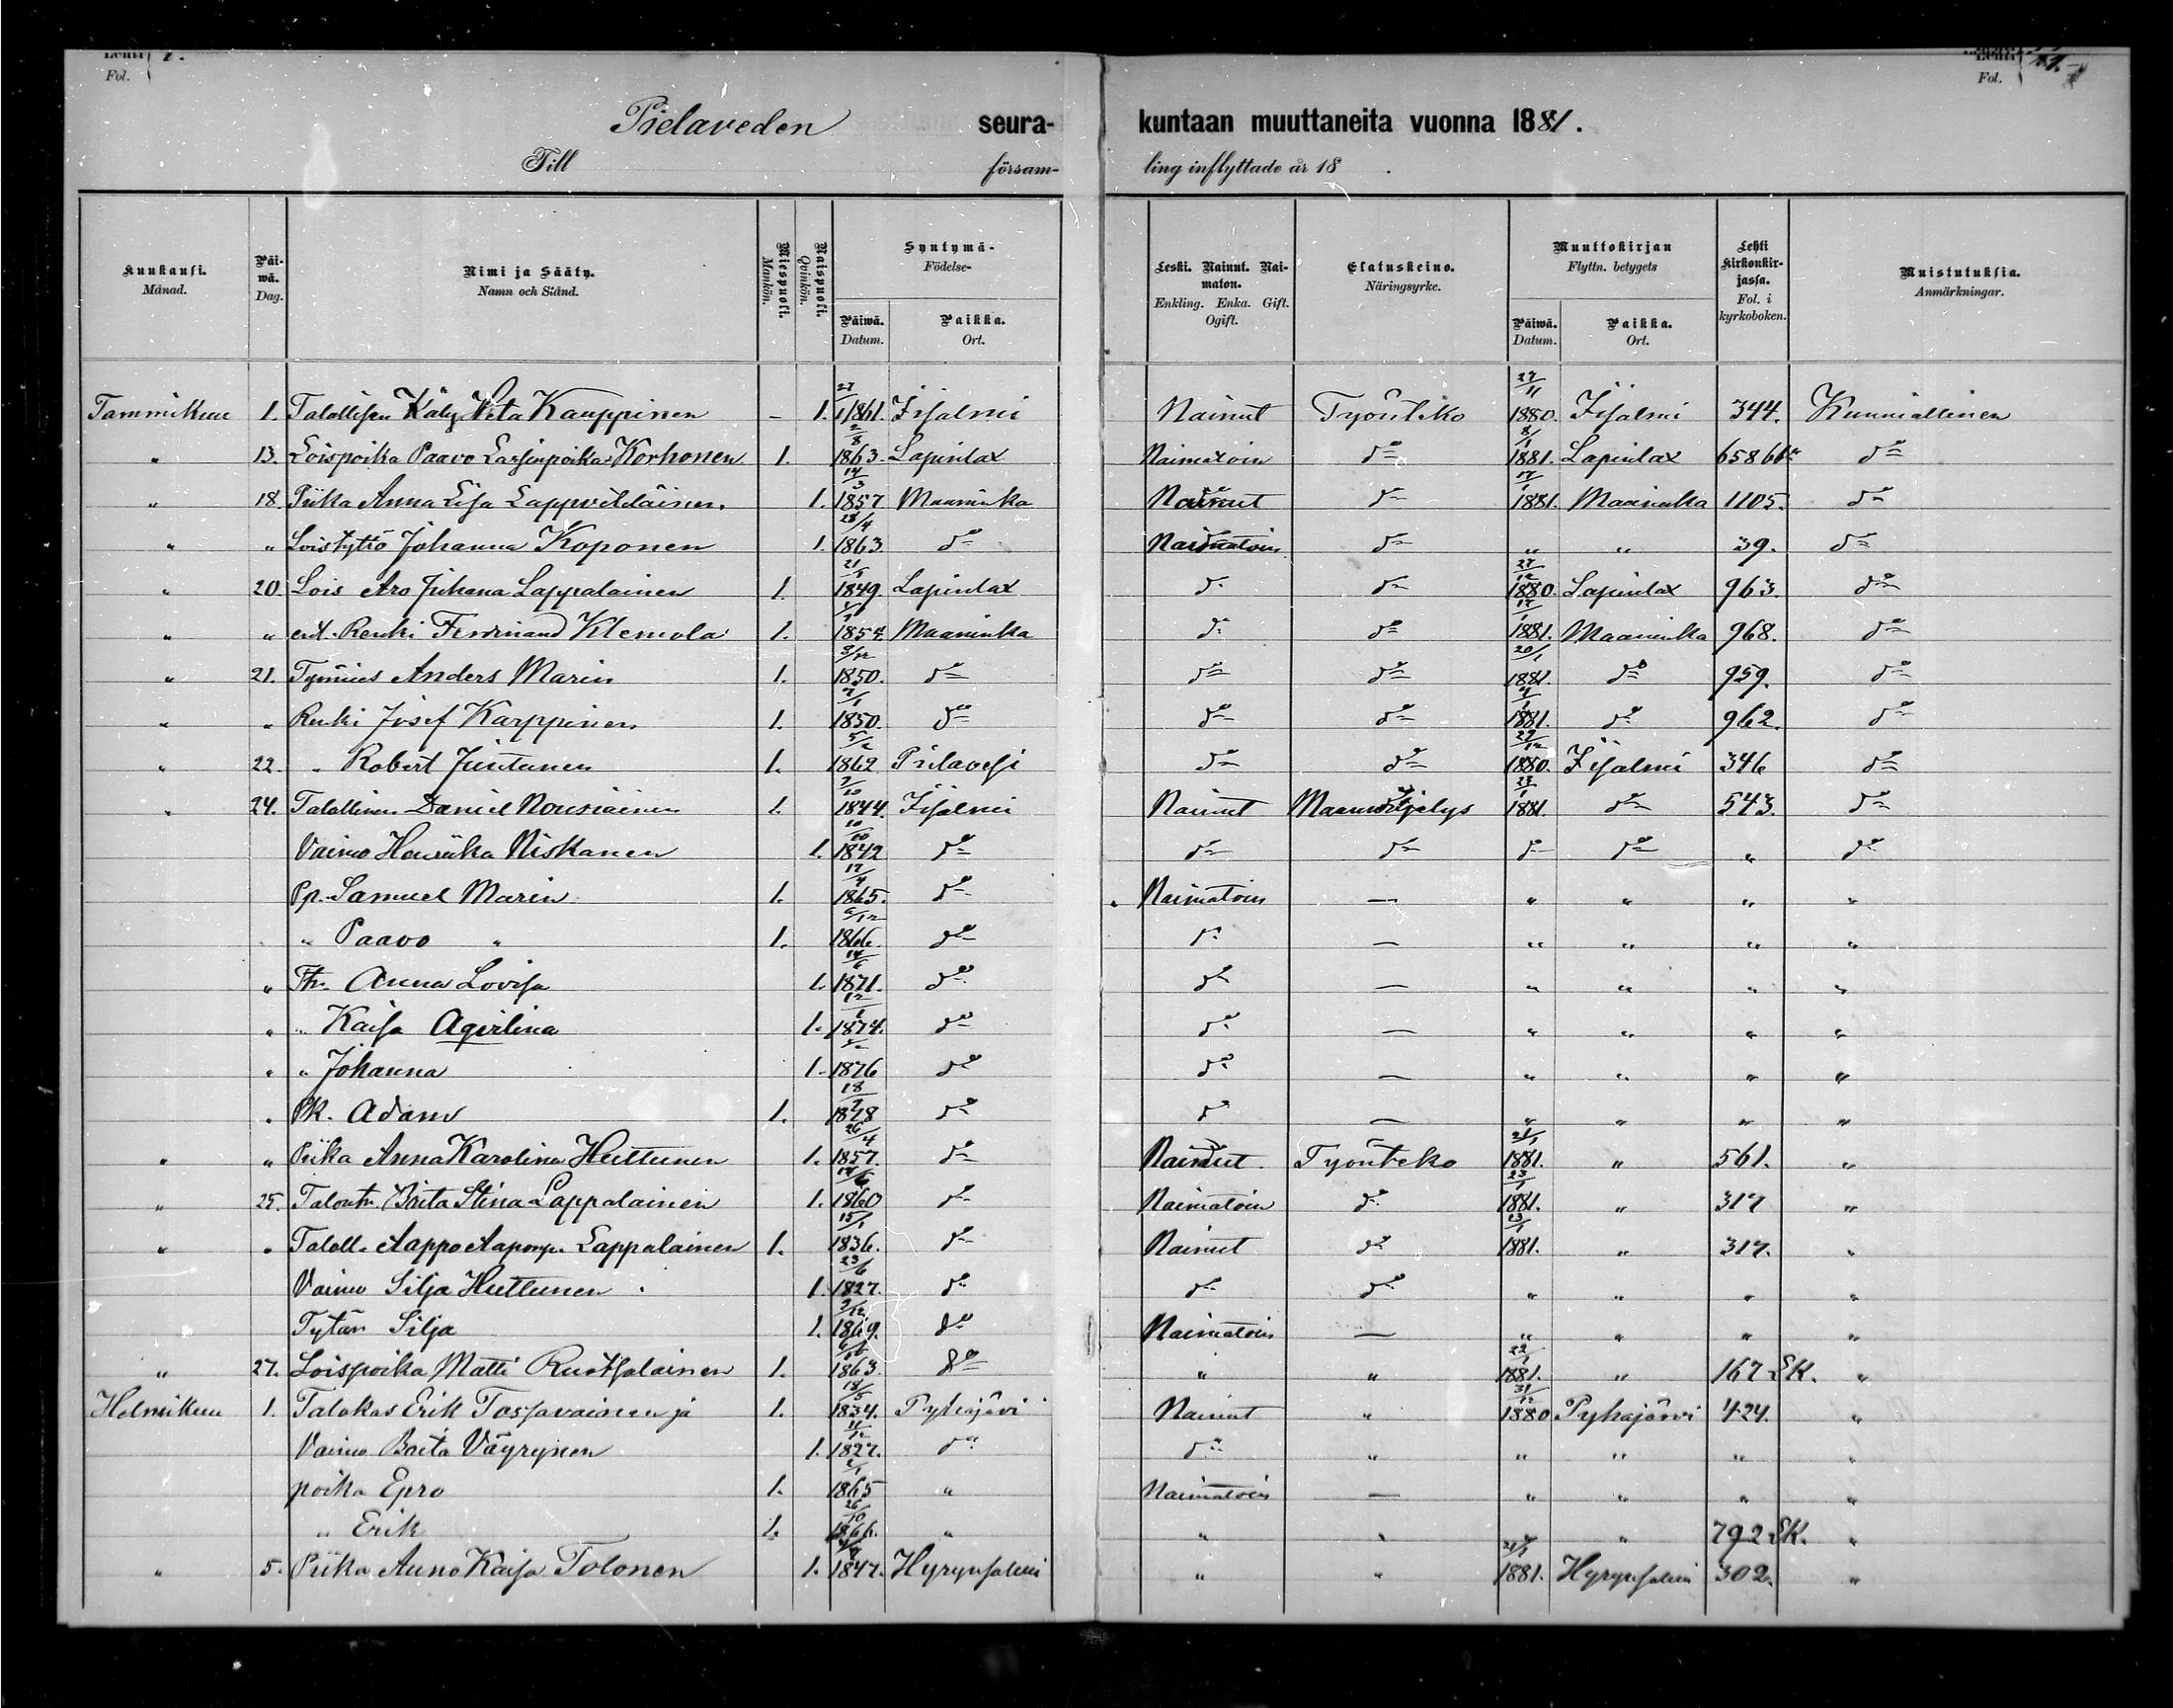 Lehti Fol. 1. Lehti Fol.
Pielaveden seura- kuntaan muuttaneita vuonna 1881.
Till försam- ling inflyttade år 18 .
Kuukausi. Månad. Päiwä. Dag. Nimi ja Sääty. Namn och Stånd. Miespuoli. Mankön. Naispuoli. Qvinkön. Syntymä- Födelse- Päiwä. Datum. Paikka. Ort. Leski. Nainut. Naimaton. Enkling. Enka. Gift. Ogift. Elatuskeino. Näringsyrke. Muuttokirjan Flyttn. betygets Päiwä. Datum. Paikka. Ort. Lehti Kirkonkirjassa. Fol. i kyrkoboken. Muistutuksia. Anmärkningar.
Tammikuu 1. Talollisen Käly Kauppinen - 1. 27/1 1861. Iisalmi Nainut Työnteko 27/11 1880. Iisalmi 344. Kunniallinen
" 13. Loispoika Paavo Lassinpoika Korhonen 1. 2/8 1863. Lapinlax Naimatoin do 8/1 1881. Lapinlax 658 do
" 18. Piika Anna Lisa Lappveteläinen. 1. 14/3 1857 Maaninka Nainut do 17/1 1881. Maaninka 1105. do
" " Loistyttö Johanna Koponen 1. 28/4 1863. do Naimatoin do " " 39. do
" 20. Lois Aro Juhana Lappalainen 1. 21/1 1849. Lapinlax do do 27/12 1880. Lapinlax 963. do
" " Renki Ferdinand Klemola 1. 1854. Maaninka do do 17/1 1881. Maaninka 968. do
" 21. Työmies Anders Marin 1. 9/12 1850. do do do 20/1 1881. do 959. do
" " Renki Josef Karppinen 1. 7/1 1850. do do do 1881. do 962. do
" 22. " Robert Juntunen 1. 5/2 1862 Pielavesi do do 29/12 1880. Iisalmi 346 do
" 24. Talollinen Daniel Nousiainen 1. 7/10 1844. Iisalmi Nainut Maanviljelys 23/1 1881. do 543. do
Vaimo Henriika Niskanen 1. 10/10 1842 do do do do do " do
Pp. Samuel Marin 1. 17/4 1865. do Naimatoin — " " " "
" Paavo " 1. 6/12 1866. do do — " " " "
" Th. Anna Lovisa 1. 14/6 1871. do do — " " " "
" " Kaisa Aqvilina 1. 1874. do do — " " " "
" " Johanna 1. 1876 do do — " " " "
" Pk. Adam 1. 18/7 1878 do do — " " " "
" " Piika Anna Karolina Huttunen 1. 26/4 1857. do Nainut Työnteko 21/1 1881. " 561. "
" 25. Talontr. Briita Stina Lappalainen 1. 14/6 1860 do Naimatoin do 23/1 1881. " 317 "
" " Taloll. Aappo Aaponp. Lappalainen 1. 15/1 1836. do Nainut do 23/1 1881. " 317. "
Vaimo Silja Huttunen 1. 23/6 1827. do do do " " " "
Tytär Silja 1. 9/12 1869. do Naimatoin — " " " "
" 27. Loispoika Matti Ruotsalainen 1. 1863. do " " 22/1 1881. " 167 EK. "
Helmikuu 1. Talokas Erik Tossavainen ja 1. 18/5 1834. Pyhäjärvi Nainut " 31/12 1880 Pyhäjärvi 424. "
Vaimo Baeta Väyrynen 1. 11/12 1827. do do " " " " "
poika Epro 1. 2/1 1865 " Naimatoin — " " " "
" Erik 1. 26/10 1866. " " " " " 792 EK. "
" 5. Piika Anna Kaisa Tolonen 1. 1847. Hyrynsalmi " " 21/1 1881. Hyrynsalmi 302. "